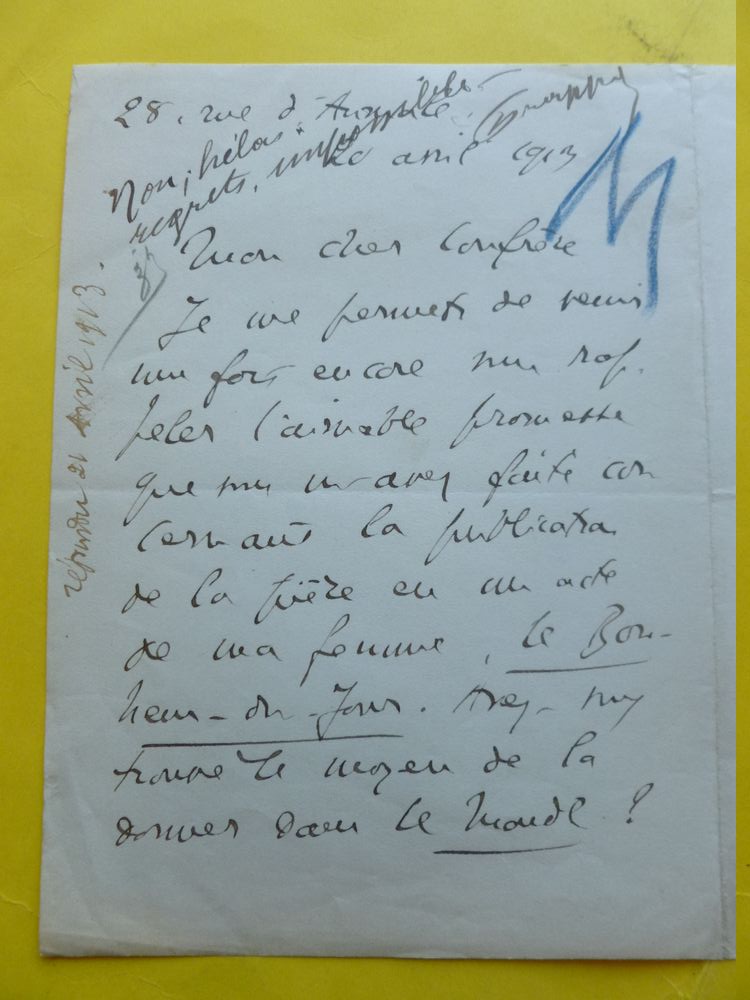 28, rue d'Aumale.
20 avril 1913
Non, hélas!
regrets. impossible.
Mon cher Confrère
Je me permets de venir
une fois encore vous rap-
peler l'aimable promesse
que vous m'avez faite con
cernant la publication
de la pièce en un acte
de ma femme, Le Bon-
heur-du-Jour. Avez-vous
trouvé le moyen de la
donner dans le Monde ?
répondu 21 Avril 1913.